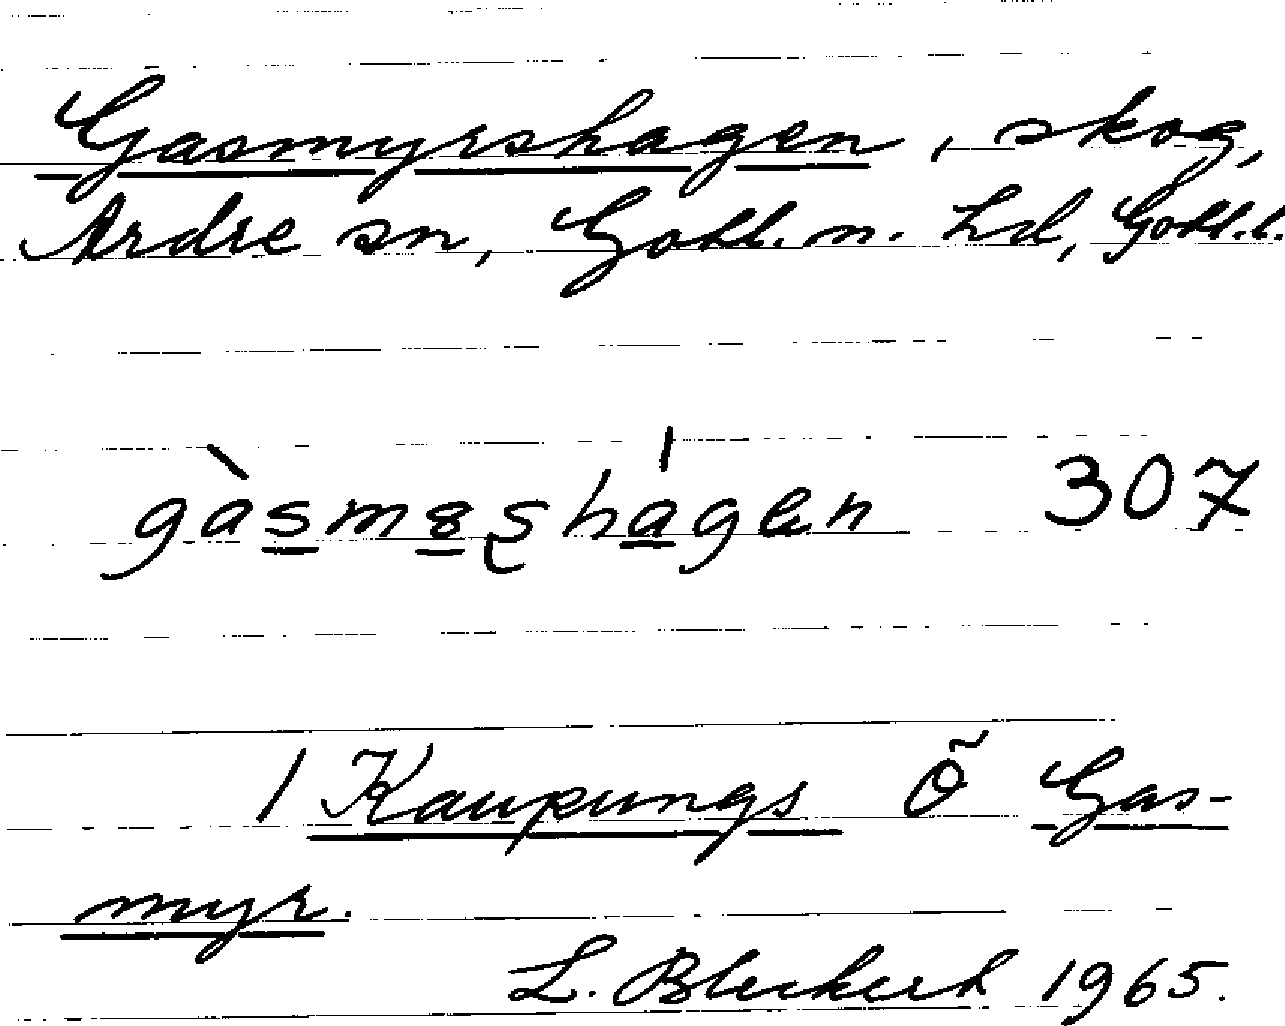 Gasmyrshagen, skog,
Ardre sn, Gotl. n. hd, Gotl. l.
gàsmꞩshágen 307
I Kaupungs Õ Gas-
myr.
L. Bleckert 1965.